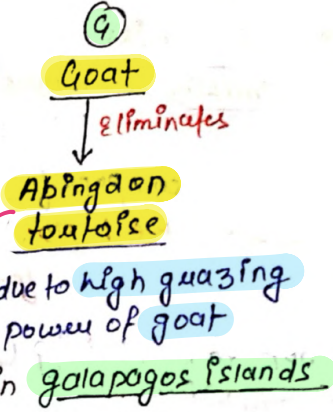 G
Goat
Eliminates
Abingdon
tortoise
due to high grazing
power of goat
in galapagos islands